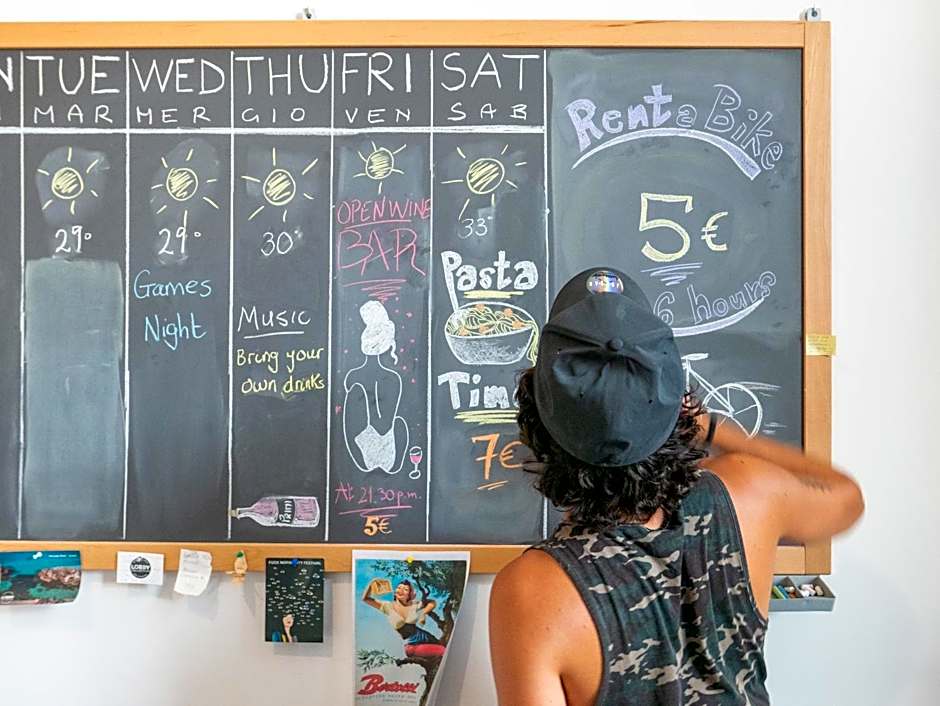 TUE
MAR
29°
WED
MER
29°
Games
Night
THU
GIO
30°
Music
Bring your
own drinks
FRI
VEN
OPEN WINE
BAR
At 21.30 p.m.
5€
SAT
SAB
33°
Pasta
7€
Rent a Bike
5€
6 hours
LOBBY
Bertolli